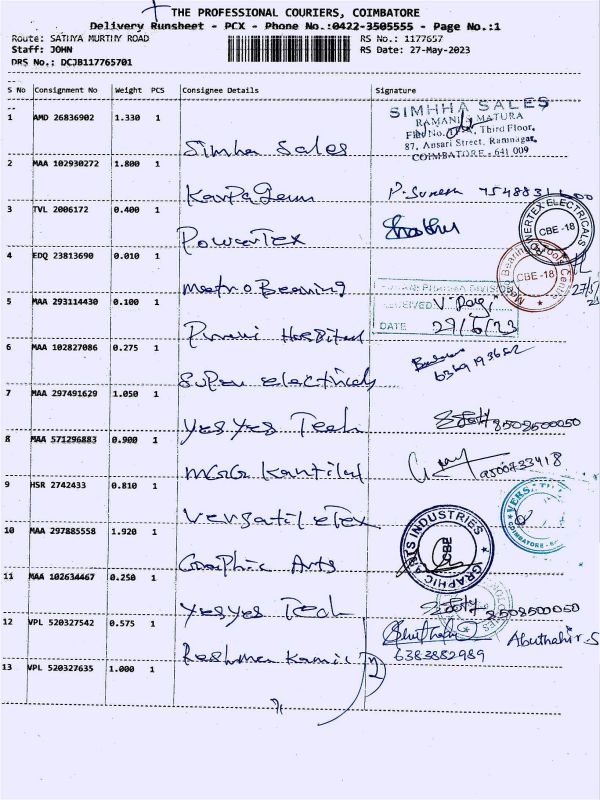 THE PROFESSIONAL COURIERS, COIMBATORE
Delivery Runsheet - PCX - Phone No.:0422-3505555 - Page No.:1
Route: SATHYA MURTHY ROAD RS No.: 1177657
Staff: JOHN RS Date: 27-May-2023
DRS No.: DCJB117765701
S No Consignment No Weight PCS Consignee Details Signature
1 AMD 26836902 1.330 1
SIMHHA SALES
RAMANI MATURA
Third Floor,
87, Ansari Street, Ramnagar,
COIMBATORE - 641 009
Simha Sales
2 MAA 102930272 1.800 1
KarPaGam P. Suresh
3 TVL 2006172 0.400 1
POWERTEX ELECTRICALS
CBE -18
PowerTex
4 EDQ 23813690 0.010 1
CBE -18
Metro Bearing
5 MAA 293114430 0.100 1
PHARMA DIVISION
RECEIVED
DATE
6 MAA 102827086 0.275 1
Super electricals
7 MAA 297491629 1.050 1
yesyes Tech 8508500050
8 MAA 571296883 0.900 1
9500733418
9 HSR 2742433 0.810 1
VersatileTex
10 MAA 297885558 1.920 1
GRAPHIC ARTS INDUSTRIES
CBE
Graphic Arts
11 MAA 102634467 0.250 1
yesyes Tech 8508500050
12 VPL 520327542 0.575 1
Abuthahir.S
6383882989
13 VPL 520327635 1.000 1